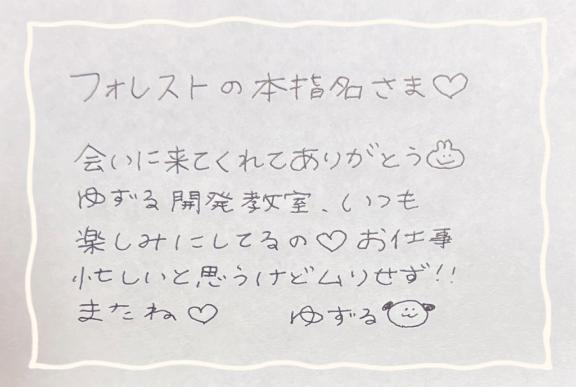 フォレストの本指名さま♡
会いに来てくれてありがとう
ゆずる開発教室、いつも
楽しみにしてるの♡お仕事
忙しいと思うけどムリせず!!
またね♡ ゆずる